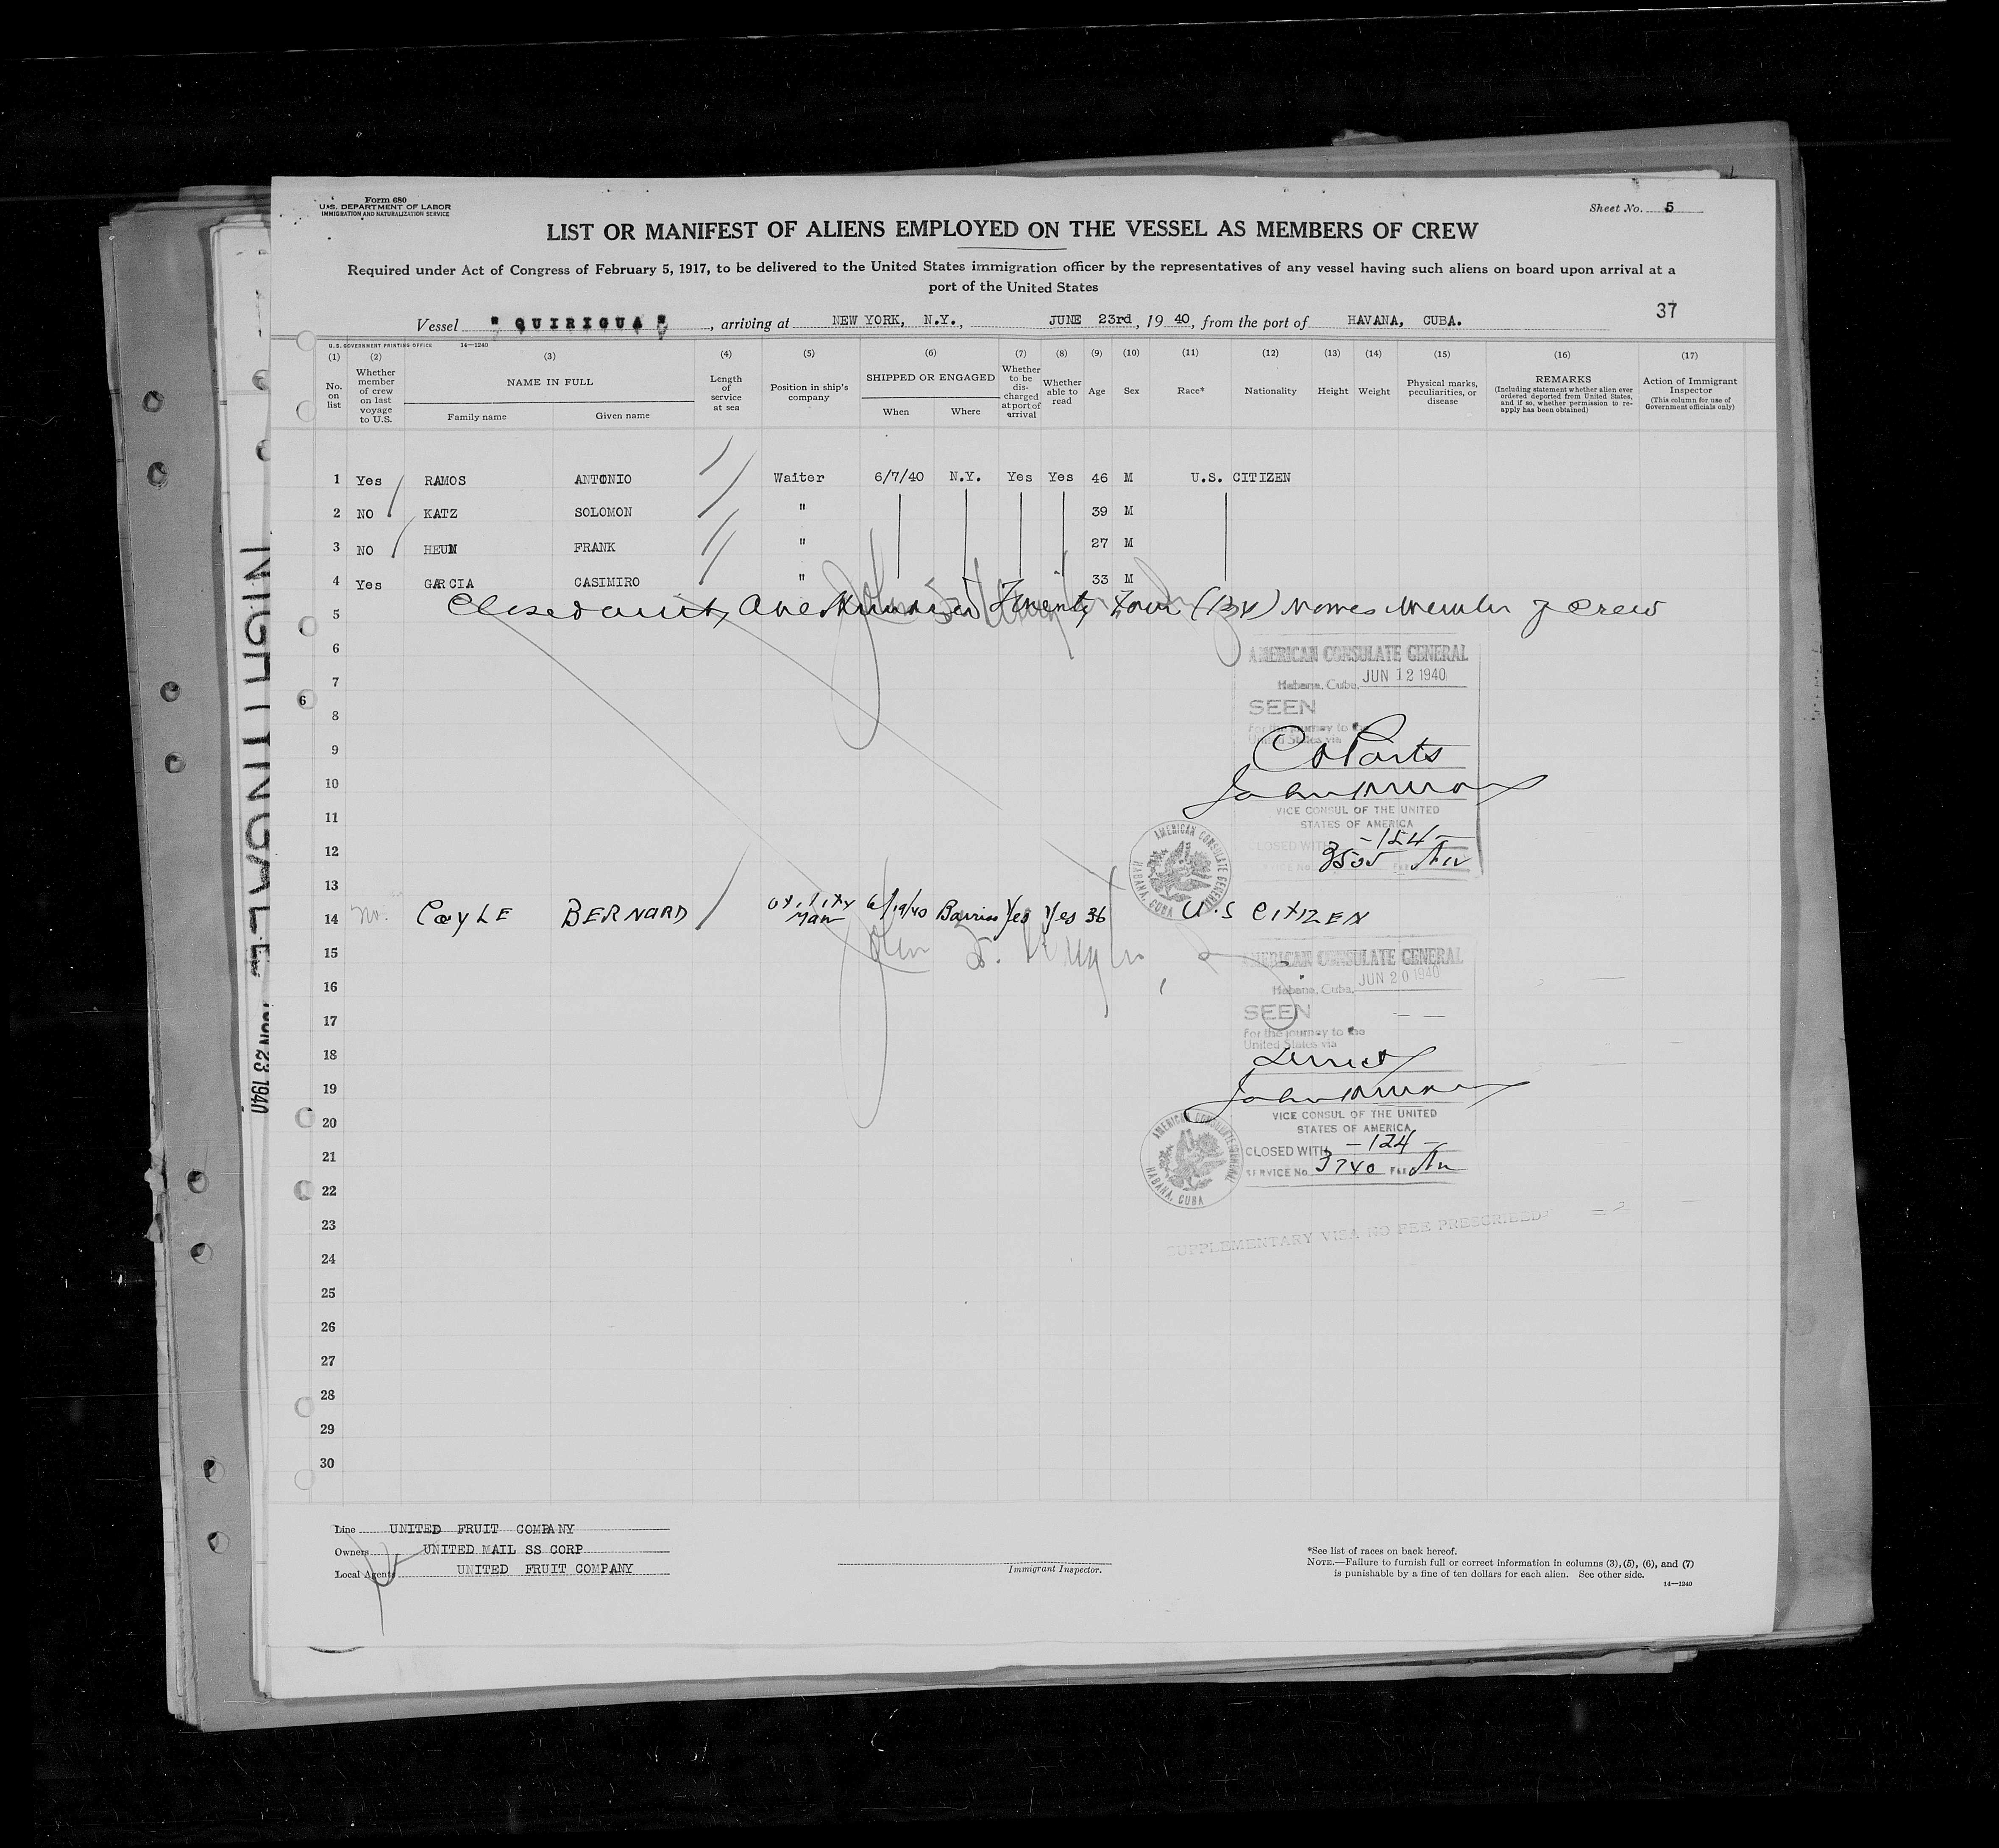 Form 680
U.S. DEPARTMENT OF LABOR
IMMIGRATION AND NATURALIZATION SERVICE
Sheet No. 5
LIST OR MANIFEST OF ALIENS EMPLOYED ON THE VESSEL AS MEMBERS OF CREW
Required under Act of Congress of February 5, 1917, to be delivered to the United States immigration officer by the representatives of any vessel having such aliens on board upon arrival at a
port of the United States
37
Vessel "QUIRIGUA", arriving at NEW YORK, N.Y., JUNE 23rd, 1940, from the port of HAVANA, CUBA.
U.S. GOVERNMENT PRINTING OFFICE 14—1240
(1) (2) (3) (4) (5) (6) (7) (8) (9) (10) (11) (12) (13) (14) (15) (16) (17)
No. on list
Whether member of crew on last voyage to U.S.
NAME IN FULL
Family name Given name
Length of service at sea
Position in ship's company
SHIPPED OR ENGAGED
When Where
Whether to be discharged at port of arrival
Whether able to read
Age
Sex
Race*
Nationality
Height
Weight
Physical marks, peculiarities, or disease
REMARKS
(Including statement whether alien ever ordered deported from United States, and if so, whether permission to re-apply has been obtained)
Action of Immigrant Inspector
(This column for use of Government officials only)
1 Yes RAMOS ANTONIO Waiter 6/7/40 N.Y. Yes Yes 46 M U.S. CITIZEN
2 NO KATZ SOLOMON " 39 M
3 NO HEUM FRANK " 27 M
4 Yes GARCIA CASIMIRO " 33 M
5 Closed with One Hundred Twenty Four (124) Names Member of Crew
6
AMERICAN CONSULATE GENERAL
7
Habana, Cuba, JUN 12 1940
SEEN
8
For the journey to the
United States via
9
10
11
VICE CONSUL OF THE UNITED
STATES OF AMERICA
12
CLOSED WITH -124-
SERVICE No. 3505 FEE
AMERICAN CONSULATE GENERAL
HABANA, CUBA
13
14 No. COYLE BERNARD Utility Man 6/19/40 Barrios Yes Yes 36 U.S CITIZEN
15
AMERICAN CONSULATE GENERAL
16
Habana, Cuba, JUN 20 1940
17
SEEN
For the journey to the
United States via
18
Direct
19
20
VICE CONSUL OF THE UNITED
STATES OF AMERICA
21
CLOSED WITH -124-
SERVICE No. 3740 FEE
AMERICAN CONSULATE GENERAL
HABANA, CUBA
22
23
SUPPLEMENTARY VISA NO FEE PRESCRIBED
24
25
26
27
28
29
30
6
NIGHTINGALE JUN 23 1940
Line UNITED FRUIT COMPANY
Owners UNITED MAIL SS CORP
Local Agents UNITED FRUIT COMPANY
Immigrant Inspector.
*See list of races on back hereof.
NOTE.—Failure to furnish full or correct information in columns (3), (5), (6), and (7)
is punishable by a fine of ten dollars for each alien. See other side.
14—1240